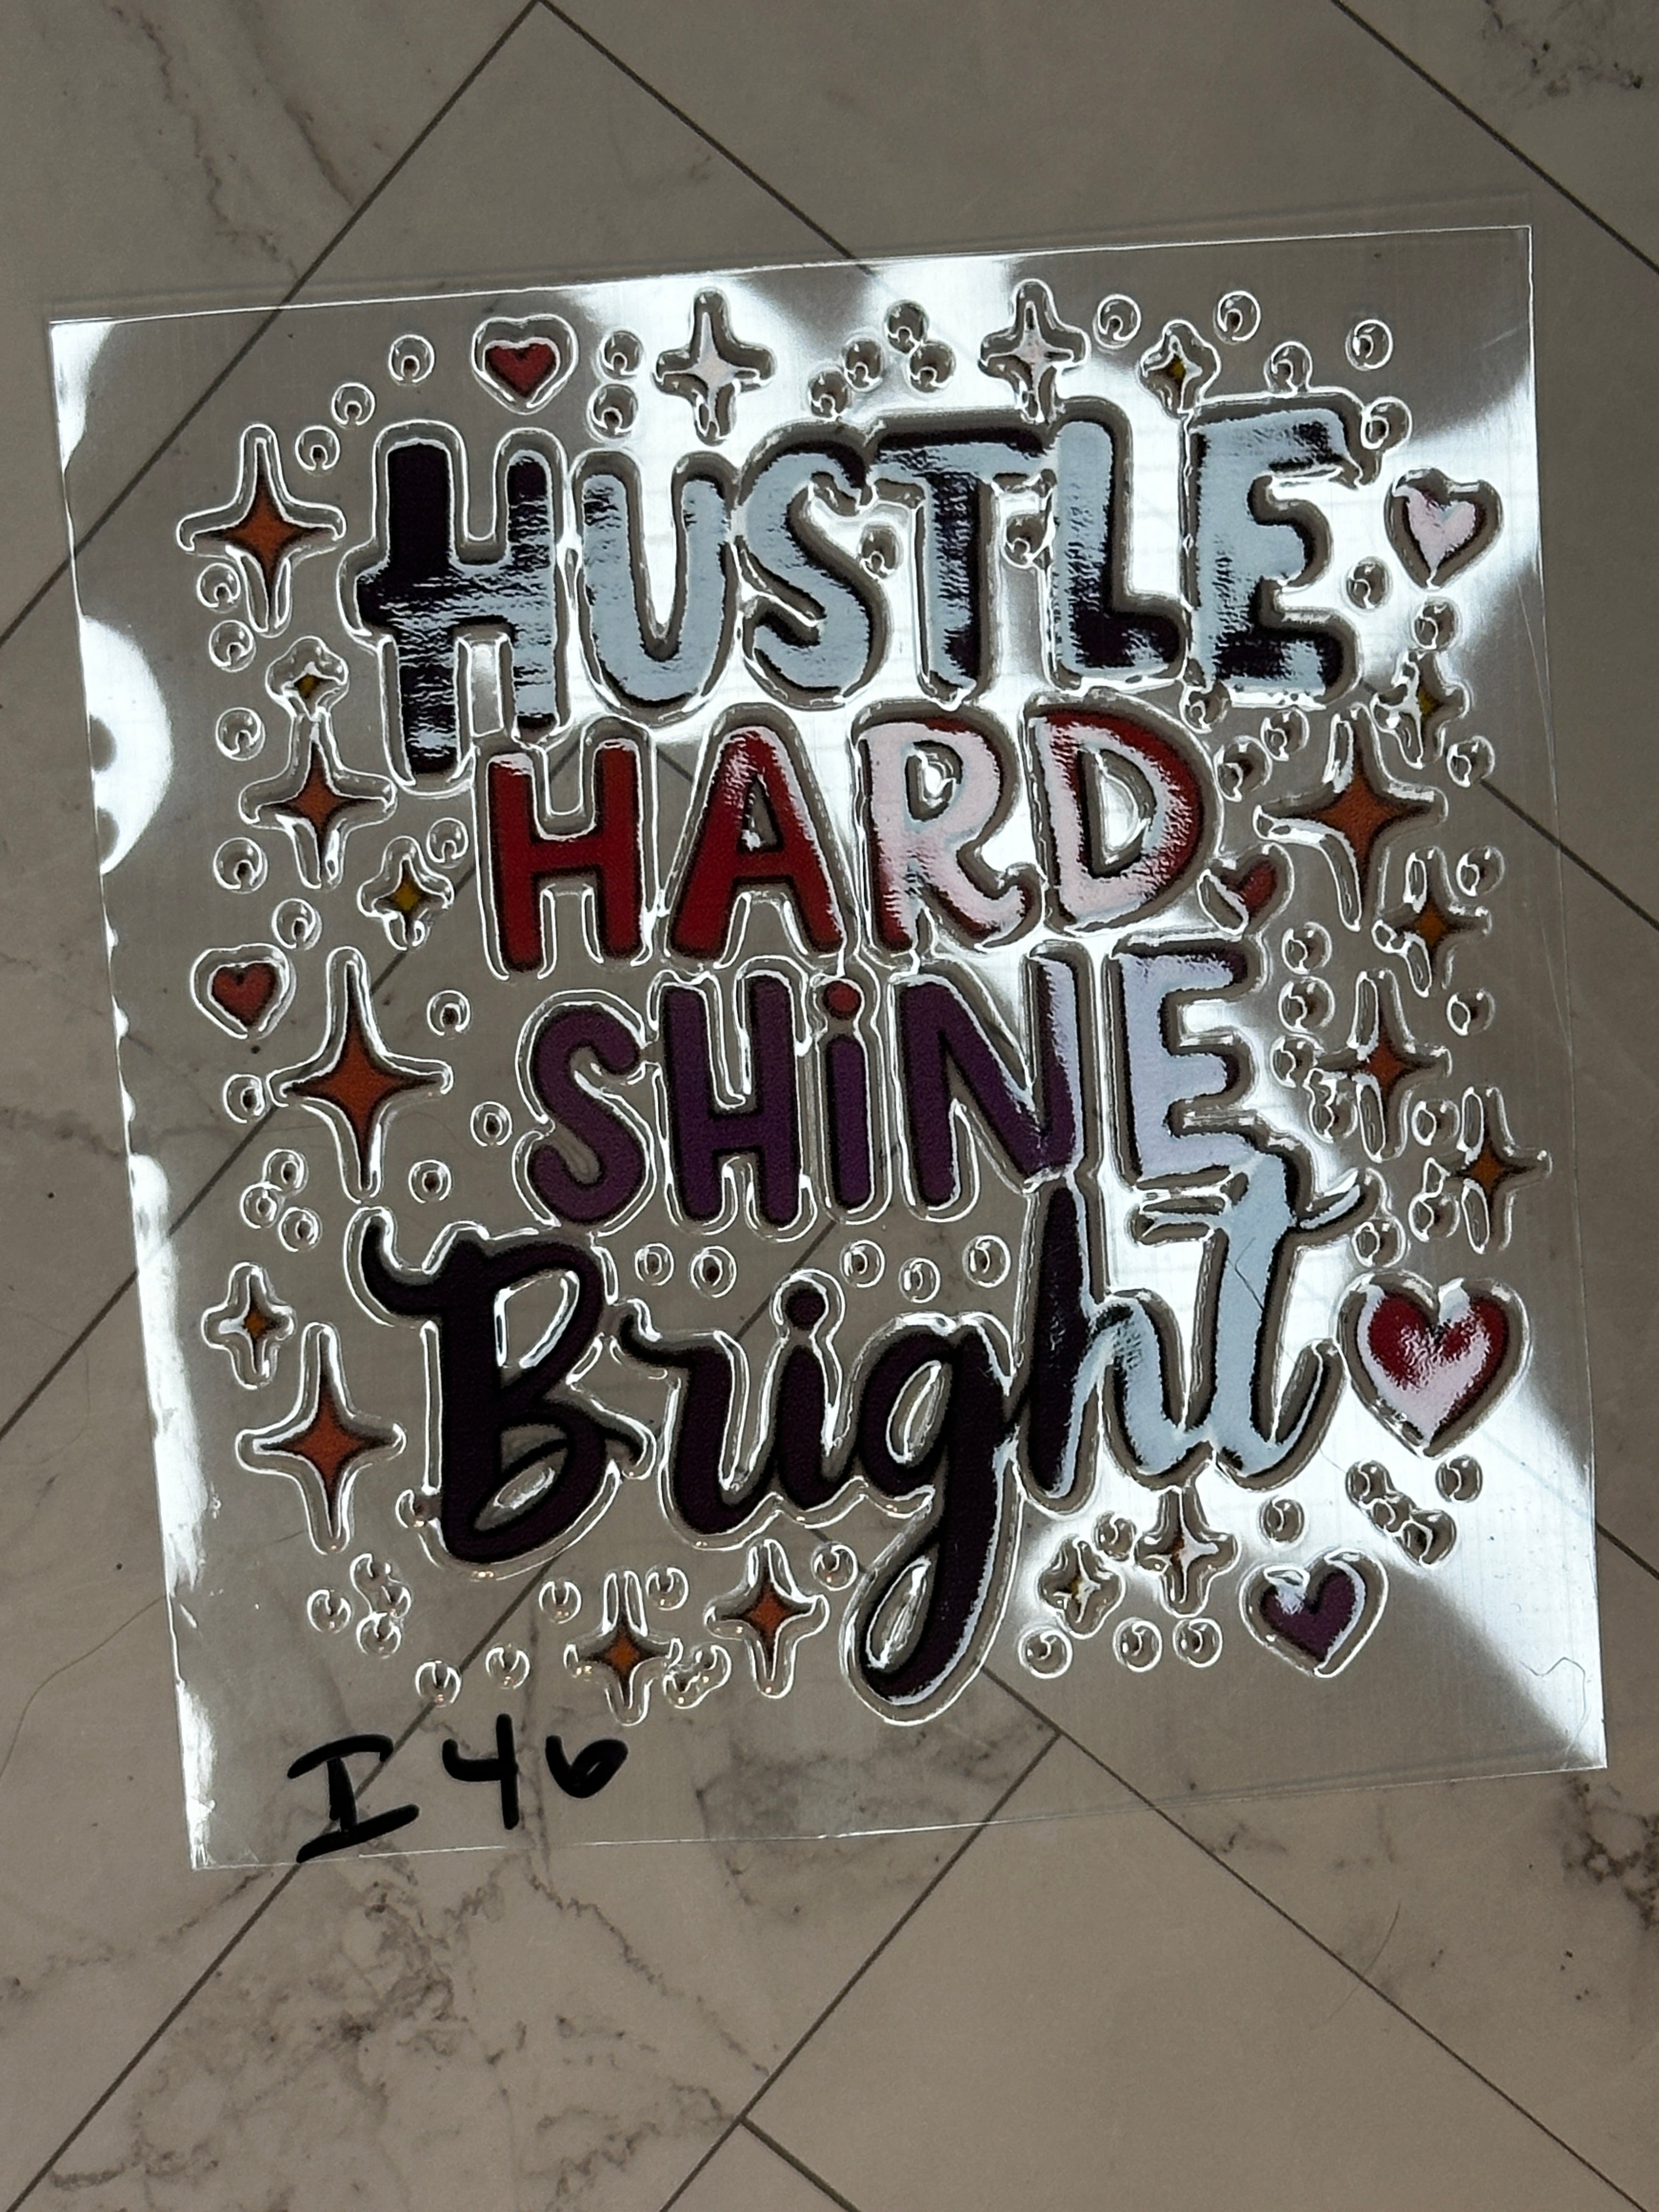 HUSTLE
HARD
SHiNE
Bright
I 46